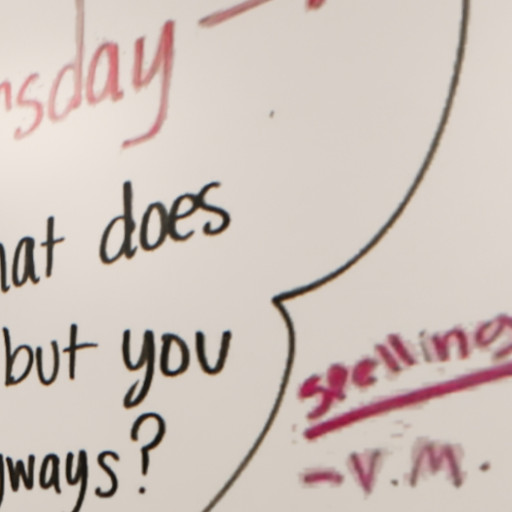 nsday -
hat does
but you
ways?
spelling
- V.M.